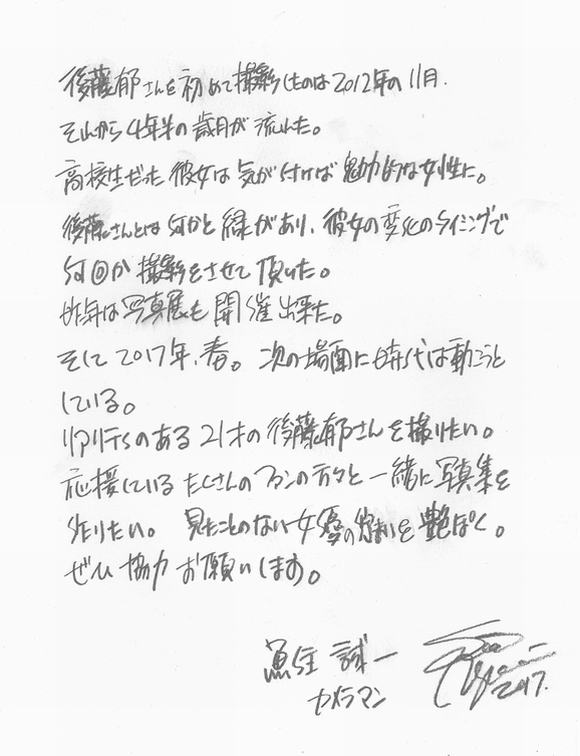 後藤郁さんを初めて撮影したのは2012年の11月.
それから4年半の歳月が流れた。
高校生だった彼女は気が付けば魅力的な女性に。
後藤さんとは何かと縁があり、彼女の変化のタイミングで
何回か撮影をさせて頂いた。
昨年は写真展も開催出来た。
そして2017年、春。次の場面に時代は動こうと
している。
リアリティのある21才の後藤郁さんを撮りたい。
応援しているたくさんのファンの方々と一緒に写真集を
作りたい。見たことのない女優の匂いを艶ぽく。
ぜひ協力お願いします。
魚住誠一
カメラマン
2017.